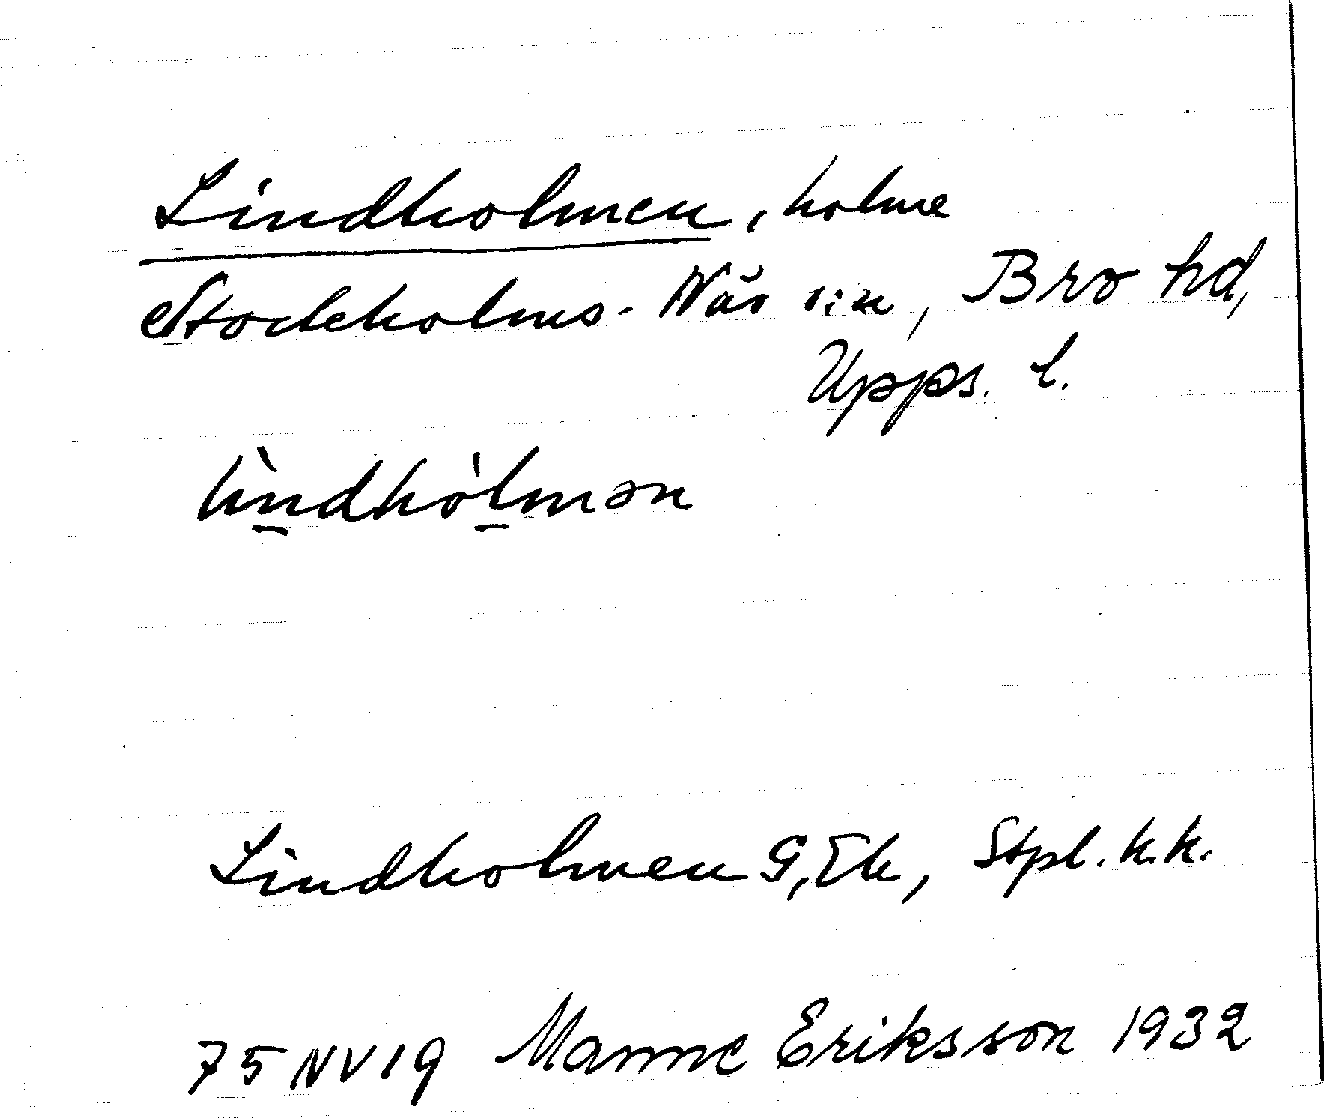 Lindholmen, holme
Stockholms-Näs sn, Bro hd,
Upps. l.
lìndhòlmən
Lindholmen G, Ek, Stpl. k.k.
75 NV 19 Manne Eriksson 1932